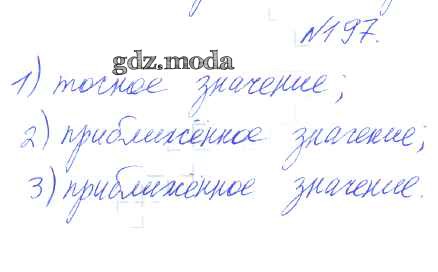 №197.
gdz.moda
1) точное значение;
2) приближённое значение;
3) приближённое значение.